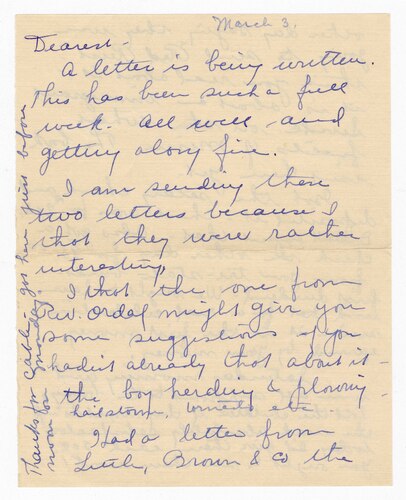 March 3.
Dearest -
A letter is being written.
This has been such a full
week. All well and
getting along fine.
I am sending these
two letters because I
thot they were rather
interesting.
I thot the one from
Rev. Ordal might give you
some suggestions if you
hadn't already thot about it -
the boy herding & plowing -
hailstorm, tornado etc.
Had a letter from
Little, Brown & Co the
Thanks for Card - got here just before
noon on Monday.